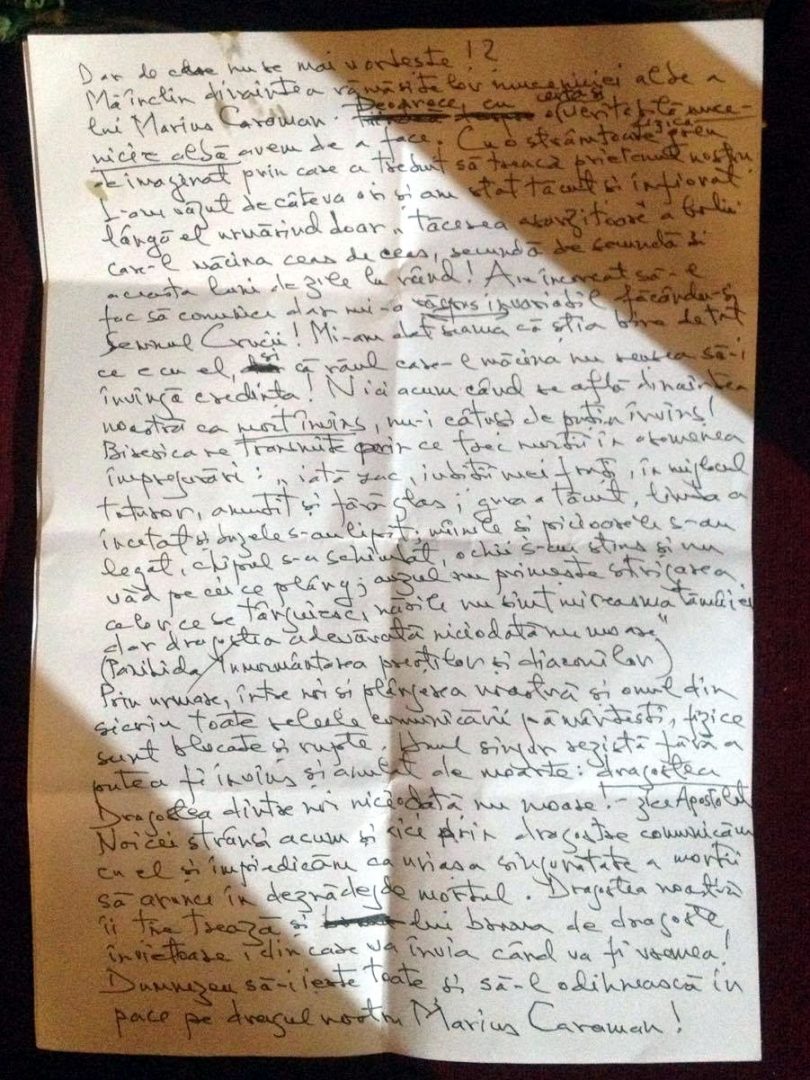 Dar de ce nu se mai vorbește!?
Mă înclin dinaintea rămășițelor muceniciei albe a
lui Marius Caraman. Deoarece, cu certă și
o veritabilă muce-
nicie albă avem de a face. Cu o strâmtoare fizică greu
de imaginat prin care a trebuit să treacă prietenul nostru
L-am văzut de câteva ori și am stat tăcut și înfiorat
lângă el urmărind doar tăcerea asurzitoare a bolii
care-l măcina ceas de ceas, secundă de secundă și
aceasta luni de zile la rând! Am încercat să-l
fac să comunice dar mi-a răspuns invariabil făcându-și
Semnul Crucii! Mi-am dat seama că știa bine de tot
ce e cu el, și că răul care-l măcina nu reușea să-i
învingă credința! Nici acum când se află dinaintea
noastră ca mort învins, nu-i câtuși de puțin învins!
Biserica ne transmite prin ce trec morții în asemenea
împrejurări: „iată zac, iubiții mei frați, în mijlocul
tuturor, amuțit și fără glas; gura a tăcut, limba a
încetat și buzele s-au lipit, mâinile și picioarele s-au
legat, chipul s-a schimbat, ochii s-au stins și nu
văd pe cei ce plâng; auzul nu primește strigarea
celor ce se tânguiesc, nările nu simt mireasma tămâiei
dar dragostea adevărată niciodată nu moare"
(Panihida Înmormântarea preoților și diaconilor)
Prin urmare, între noi și plângerea noastră și omul din
sicriu toate celelalte comunicării pământești, fizice
sunt blocate și rupte. Unul singur rezistă fără a
putea fi învins și anulat de moarte: dragostea
Dragostea dintre noi niciodată nu moare! - zice Apostolul
Noi cei strânși acum și aici prin dragoste comunicăm
cu el și împiedicăm ca uriașa singurătate a morții
să arunce în deznădejde mortul. Dragostea noastră
îi ține trează și lui boarea de dragoste
învietoare, din care va învia când va fi vremea!
Dumnezeu să-i ierte toate și să-l odihnească în
pace pe dragul nostru Marius Caraman!